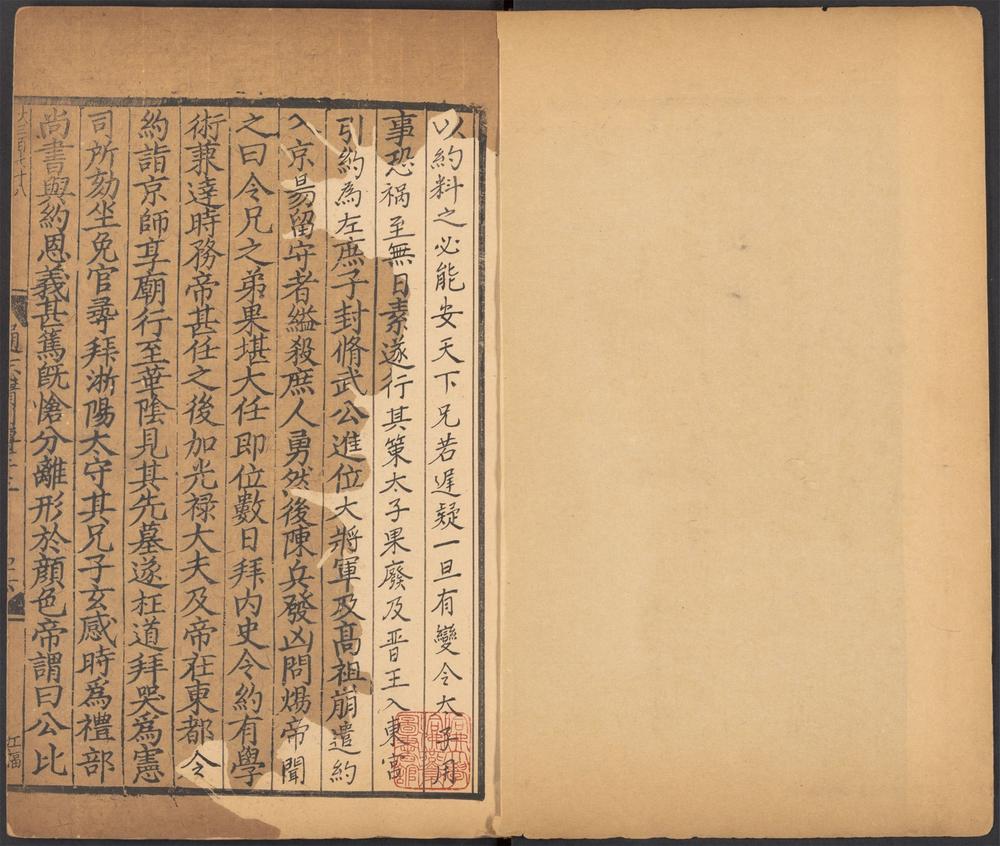 以約料之必能安天下兄若遲疑一旦有變令太子用
事恐禍至無日素遂行其策太子果廢及晋王入東宮
引約為左庶子封脩武公進位大將軍及髙祖崩遣約
入京昜留守者縊殺庶人勇然後陳兵發凶問煬帝聞
之曰令兄之弟果堪大任即位數日拜内史令約有學
術兼達時務帝甚任之後加光禄大夫及帝在東都令
約詣京師享廟行至華陰見其先墓遂枉道拜哭爲憲
司所劾坐免官尋拜淅陽太守其兄子玄感時爲禮部
尚書與約恩義甚篤旣愴分離形於顔色帝謂曰公比